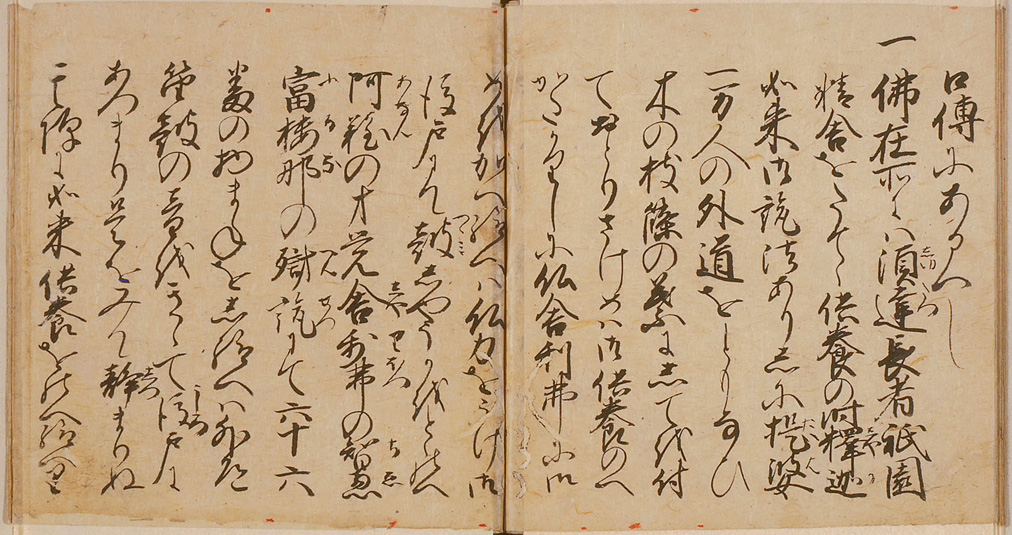 口傳にあるへし
一佛在所には須達長者祇園
精舎をたてゝ供養の時釋迦
如来御説法ありしに提婆
一万人の外道をともなひ
木の枝篠の葉にしてを付
てをとりさけめは御供養のへ
かたかりしに仏舎利弗に御
めをかへ給へは仏力をうけ御
後戸にて鼓しやうかをとゝのへ
阿難の才覚舎利弗の智恵
富樓那の弁説にて六十六
番の物まねをし給へは外道
笛鼓の音をきゝて後戸に
あつまり是をみて静まりぬ
其隙に如来供養をのへ給へり